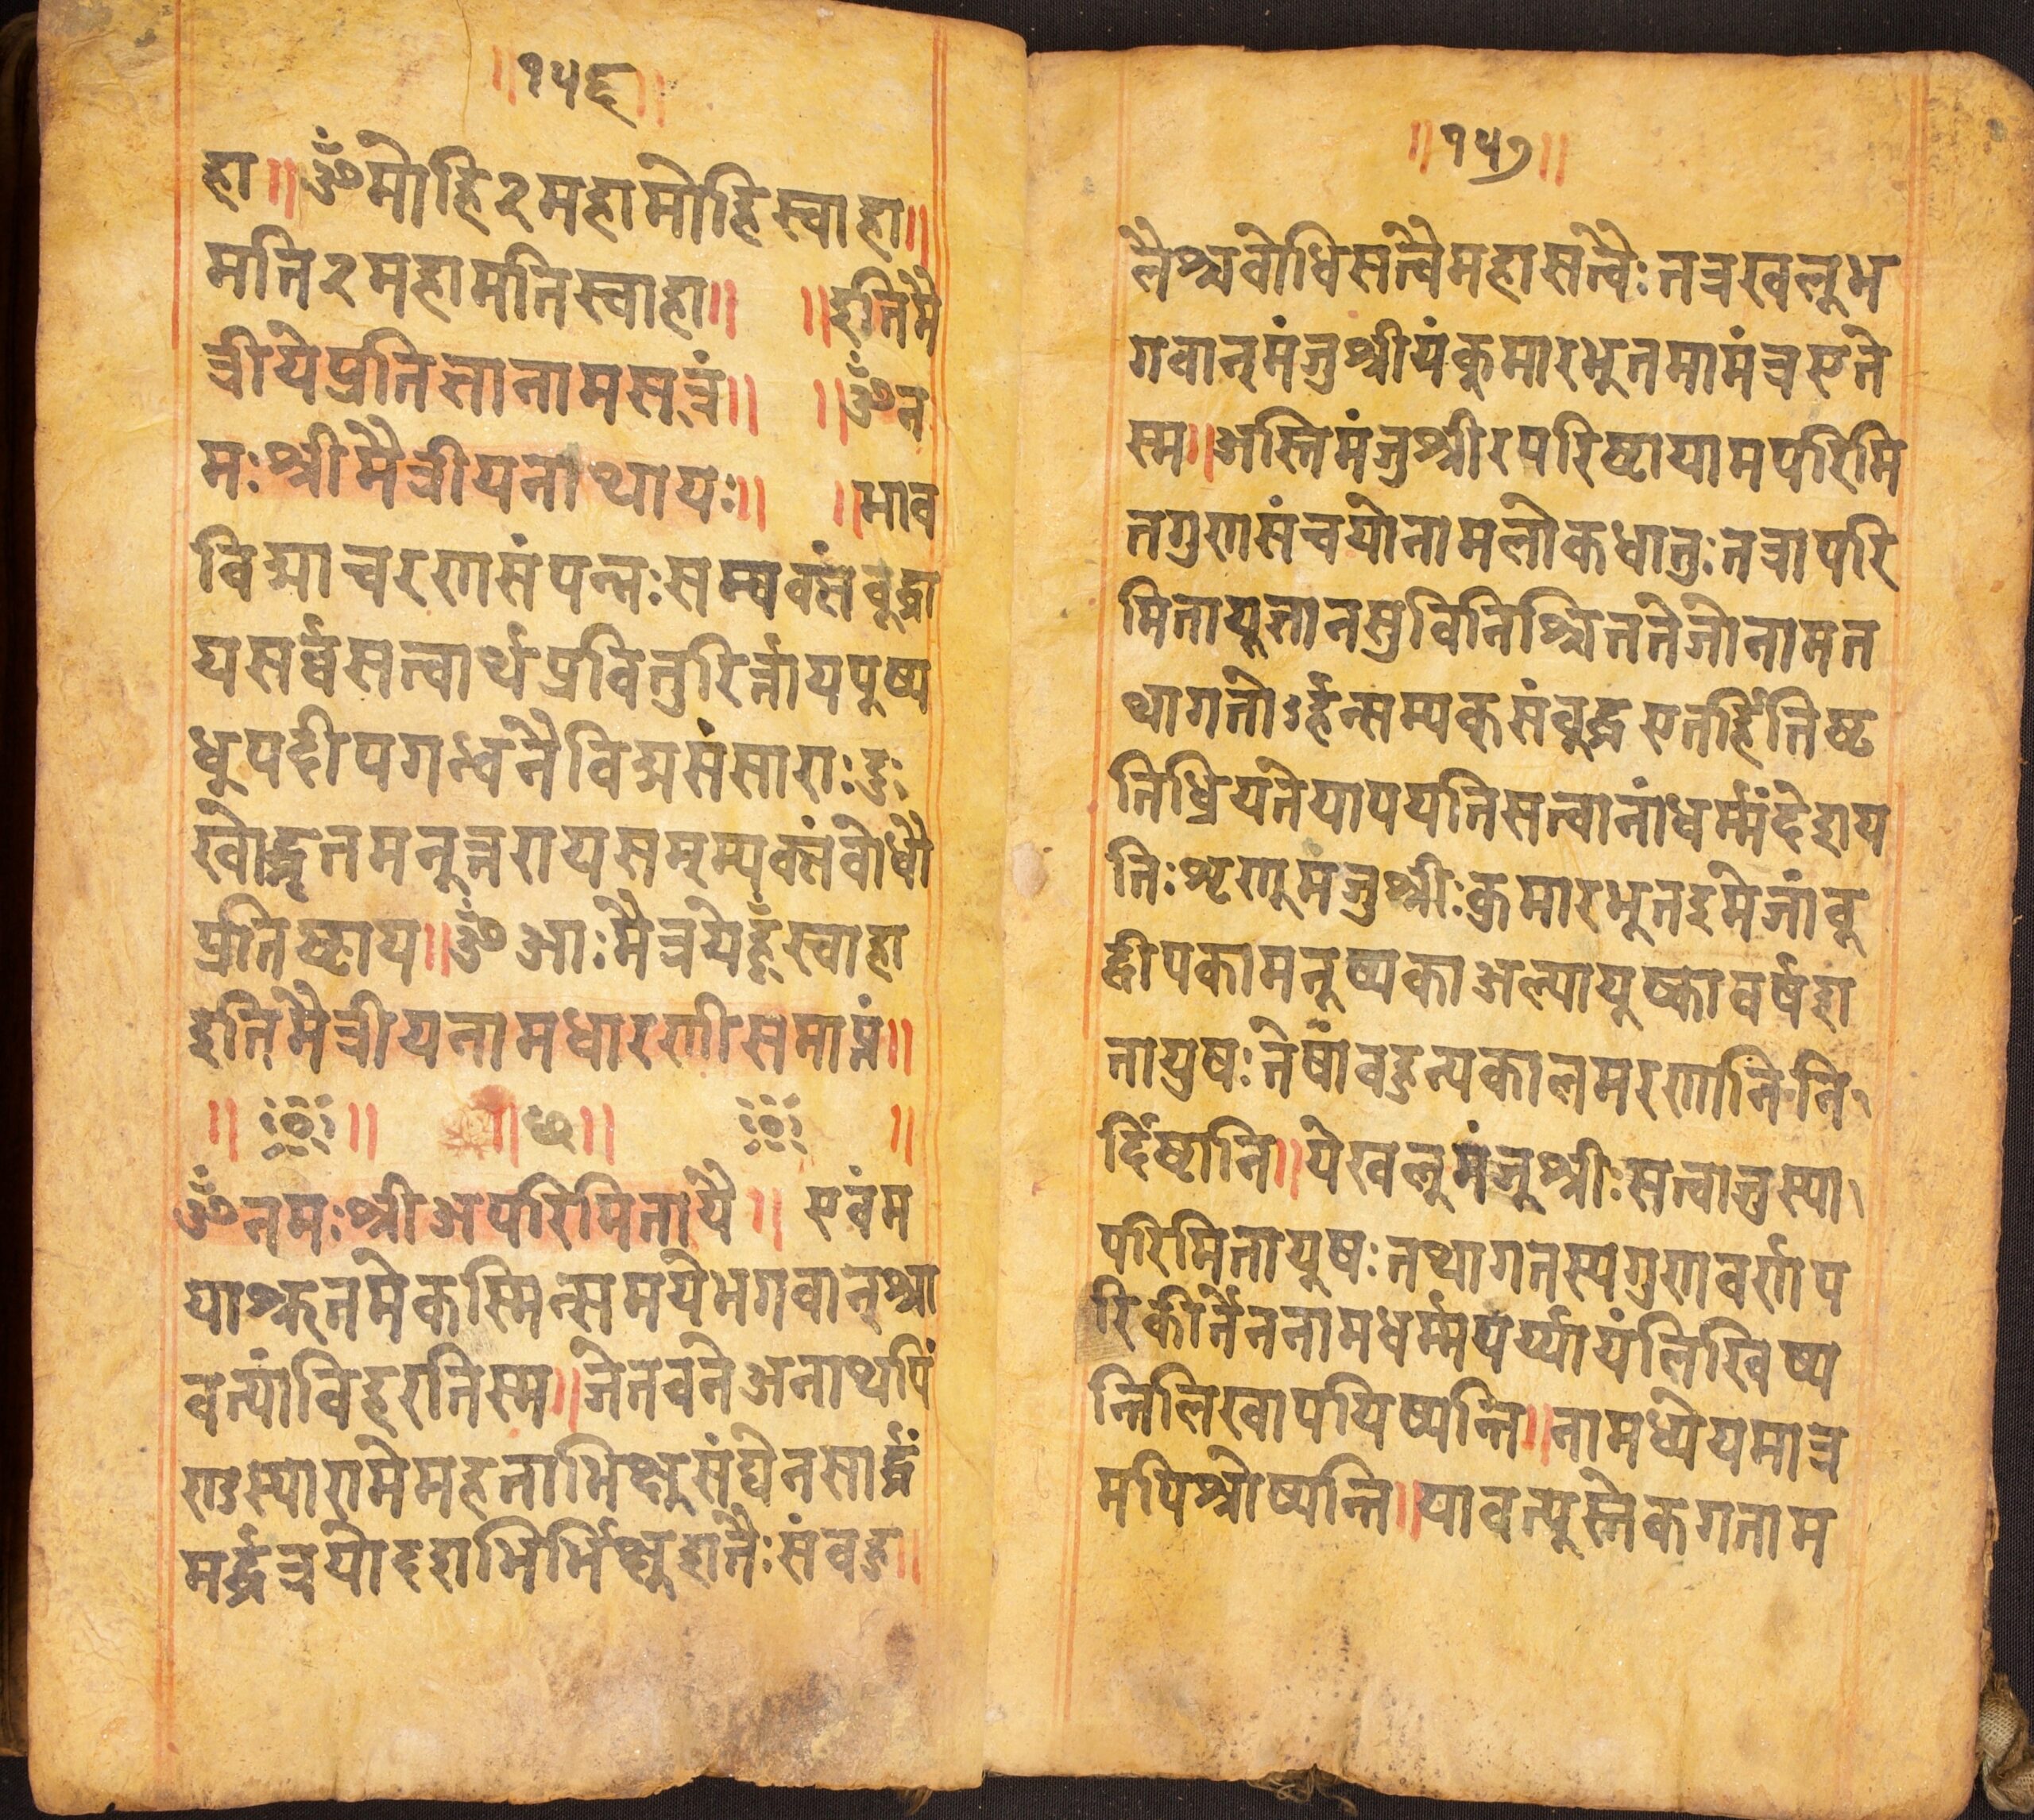 ॥१५६॥
हा॥ॐमोहि२महामोहिस्वाहा॥
मति२महामतिस्वाहा॥ ॥इतिमै
त्रीयेप्रतिज्ञानामसूत्रं॥ ॥ॐन
मःश्रीमैत्रीयनाथायः॥ ॥भाव
विद्याचरणसंपन्नःसम्यक्संबुद्धा
यसर्व्वसत्त्वार्थप्रवि
धुपदीपगन्धनैविद्यसंसाराःदुः
खोद्धृतमनूत्तरायसम्म्यक्संवोधौ
प्रतिष्ठाय॥ॐआःमैत्रयेहूँस्वाहा
इतिमैत्रीयनामधारणीसमाप्तं॥
॥ ॥ ॥छ॥ ॥
ॐनमःश्रीअपरिमितायै॥ एवंम
याश्रुतमेकस्मिन्समयेभगवान्श्रा
वत्यांविहरतिस्म॥जेतवनेअनाथपिं
ण्डस्यारामेमहताभिक्षुसंघेनसार्द्धं
मर्द्धत्रयोदशभिर्भिक्षुशतैःसंवहु॥
॥१५७॥
लैश्चवोधिसत्त्वैमहासत्त्वैःतत्रखलूभ
गवान्मंजुश्रीयंकुमारभूतमामंत्रएते
स्म॥अस्तिमंजुश्रीरपरिष्टायामपरिमि
तगुणसंचयोनामलोकधातुःतत्रापरि
मितायूज्ञानसुविनिश्चिततेजोनामत
थागतोऽर्हन्सम्यक्संवुद्धएतर्हितिष्ट
तिध्रियतेयापयतिसत्त्वानांधर्म्मंदेशय
तिःशृणूमंजुश्रीःकुमारभूतइमेजांवू
द्वीपकामनूष्यकाअल्पायूष्कावर्षश
तायुषःतेषांवहुन्यकालमरणानिनि
र्दिष्टानि॥येखलूमंजूश्रीःसत्त्वातुस्या
परिमितायूषःतथागतस्यगुणवर्णप
रिकीर्त्तननामधर्म्मपर्य्यायंलिखिष्य
न्तिलिखापयिष्यन्ति॥नामध्येयमात्र
मपिश्रोष्यन्ति॥यावत्पूस्तेकगताम